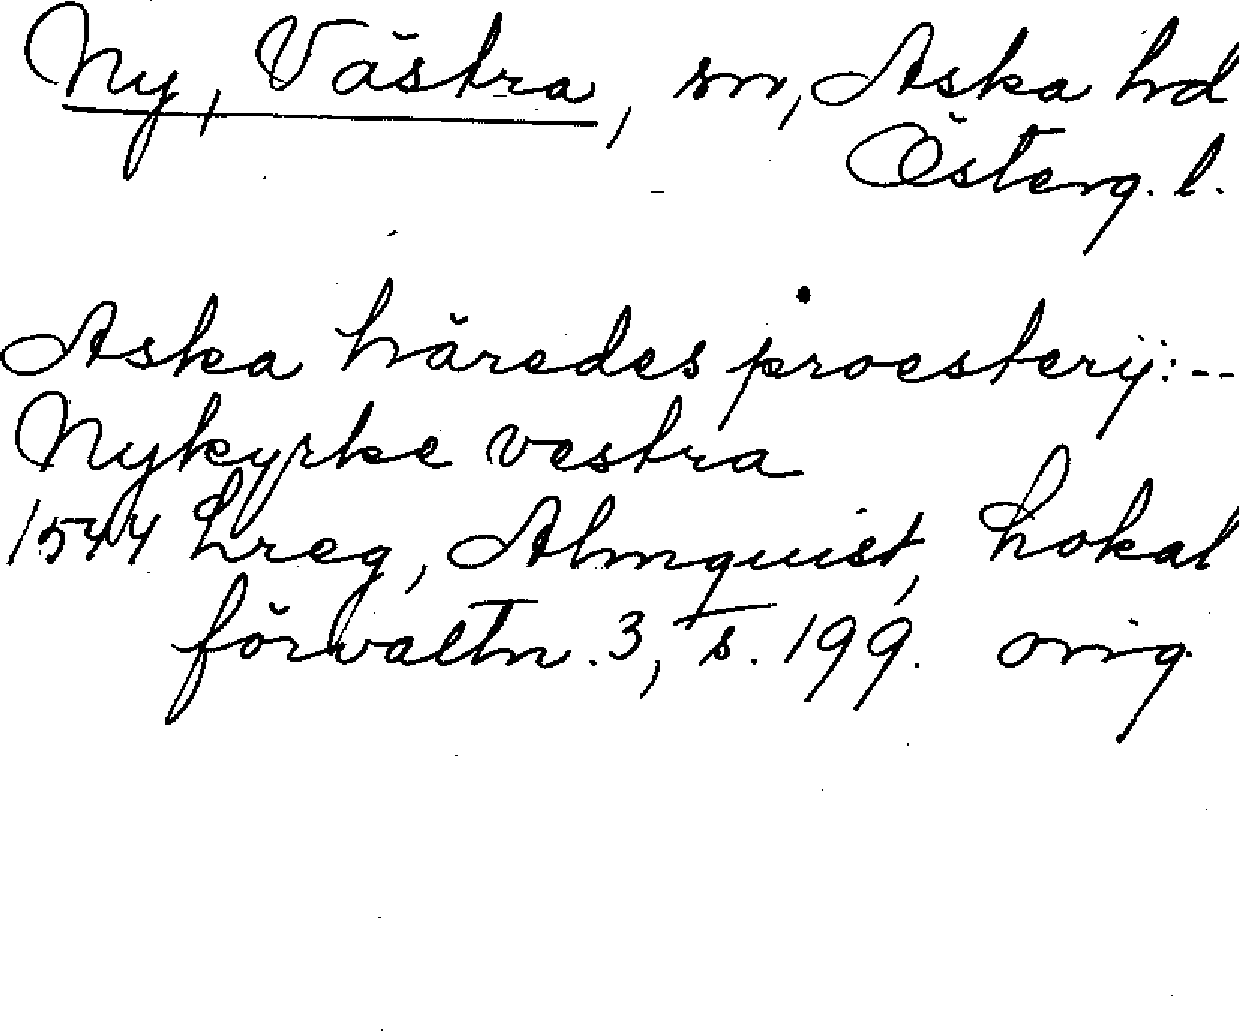 Ny, Västra, sn, Aska hd
Österg. l.
Aska häredes proesterij: --
Nykyrke vestra
1544 Lreg, Almquist, Lokal
förvaltn. 3, s. 199. orig